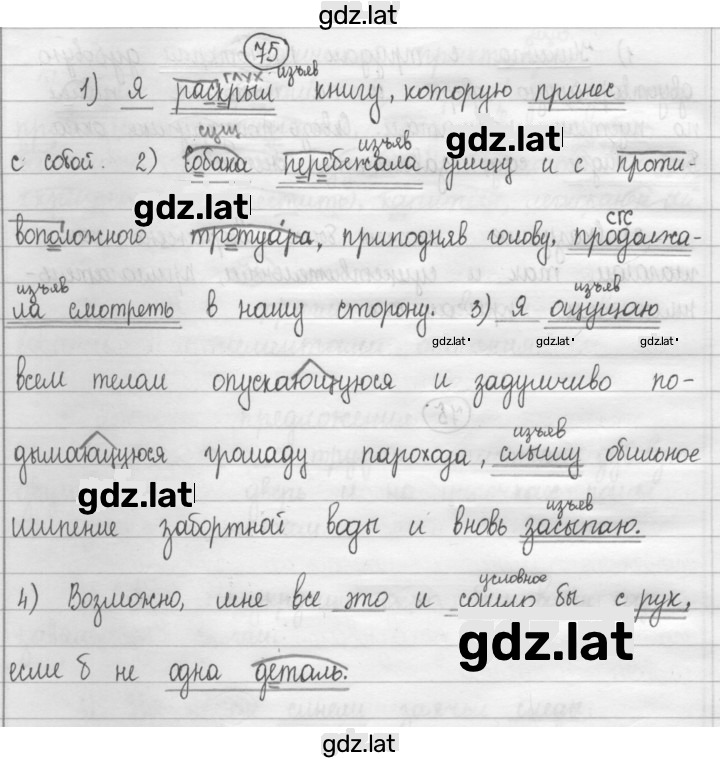 gdz.lat
75
глух. изъяв
1) Я раскрыл книгу, которую принес
сущ изъяв gdz.lat
с собой. 2) Собака перебежала улицу и с проти-
gdz.lat СГС
воположного тротуара, приподняв голову, продолжа-
изъяв изъяв
ла смотреть в нашу сторону. 3) Я ощущаю
gdz.lat gdz.lat gdz.lat
всем телом опускающуюся и задумчиво по-
изъяв
дымающуюся громаду парохода, слышу обильное
gdz.lat изъяв
шипение забортной воды и вновь засыпаю.
условное
4) Возможно, мне все это и сошло бы с рук,
gdz.lat
если б не одна деталь.
gdz.lat